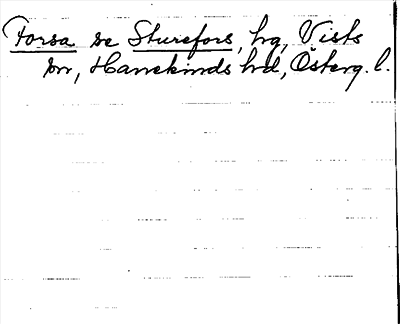 Forsa se Sturefors, hg, Vists
sn, Hanekinds hd, Österg. l.